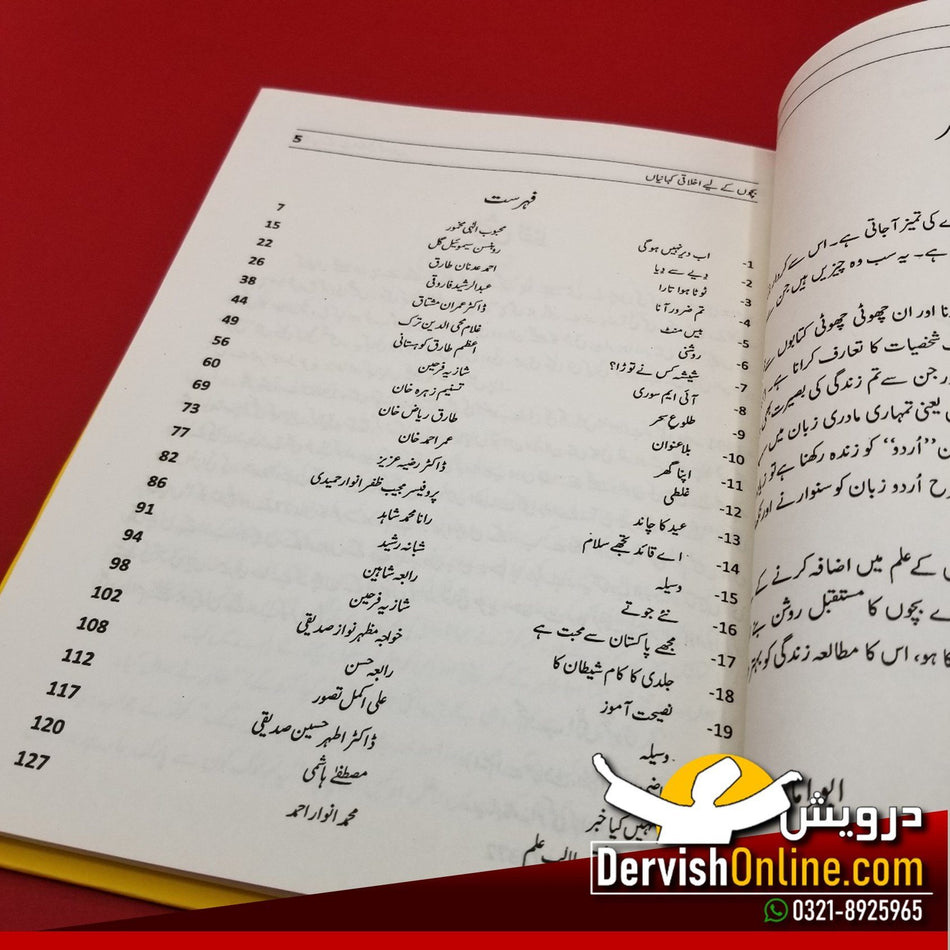 5
بچوں کے لیے اخلاقی کہانیاں
فہرست
1- اب دیر نہیں ہوگی محبوب الٰہی مخمور 7
2- دیے سے دیا روبنسن سیموئیل گل 15
3- ٹوٹا ہوا تارا احمد عدنان طارق 22
4- تم ضرور آنا عبدالرشید فاروقی 26
5- بیس منٹ ڈاکٹر عمران مشتاق 38
6- روشنی غلام محی الدین ترک 44
7- شیشہ کس نے توڑا؟ اعظم طارق کوہستانی 49
8- آئی ایم سوری شازیہ فرحین 56
9- طلوع سحر تسنیم زہرہ خان 60
10- بلاعنوان طارق ریاض خان 69
11- اپنا گھر عمر احمد خان 73
12- غلطی ڈاکٹر رضیہ عزیز 77
13- عید کا چاند پروفیسر مجیب ظفر انوار حمیدی 82
14- اے قائد تجھے سلام رانا محمد شاہد 86
15- وسیلہ شبانہ رشید 91
16- نئے جوتے رابعہ شاہین 94
17- مجھے پاکستان سے محبت ہے شازیہ فرحین 98
18- جلدی کا کام شیطان کا خواجہ مظہر نواز صدیقی 102
19- نصیحت آموز رابعہ حسن 108
وسیلہ علی اکمل تصور 112
ڈاکٹر اطہر حسین صدیقی 117
کیا خبر مصطفیٰ ہاشمی 120
علم محمد انوار احمد 127
ے کی تمیز آجاتی ہے۔ اس سے کردار
ہے۔ یہ سب وہ چیزیں ہیں جن
نا اور ان چھوٹی چھوٹی کتابوں سے
شخصیات کا تعارف کرانا ہے
ور جن سے تم زندگی کی بصیرت
یعنی تمہاری مادری زبان میں
ن ’’اُردو‘‘ کو زندہ رکھنا ہے تو
رح اُردو زبان کو سنوارنے اور
کے علم میں اضافہ کرنے کے
ے بچوں کا مستقبل روشن
کا ہو، اس کا مطالعہ زندگی کو
درویش
DervishOnline.com
0321-8925965